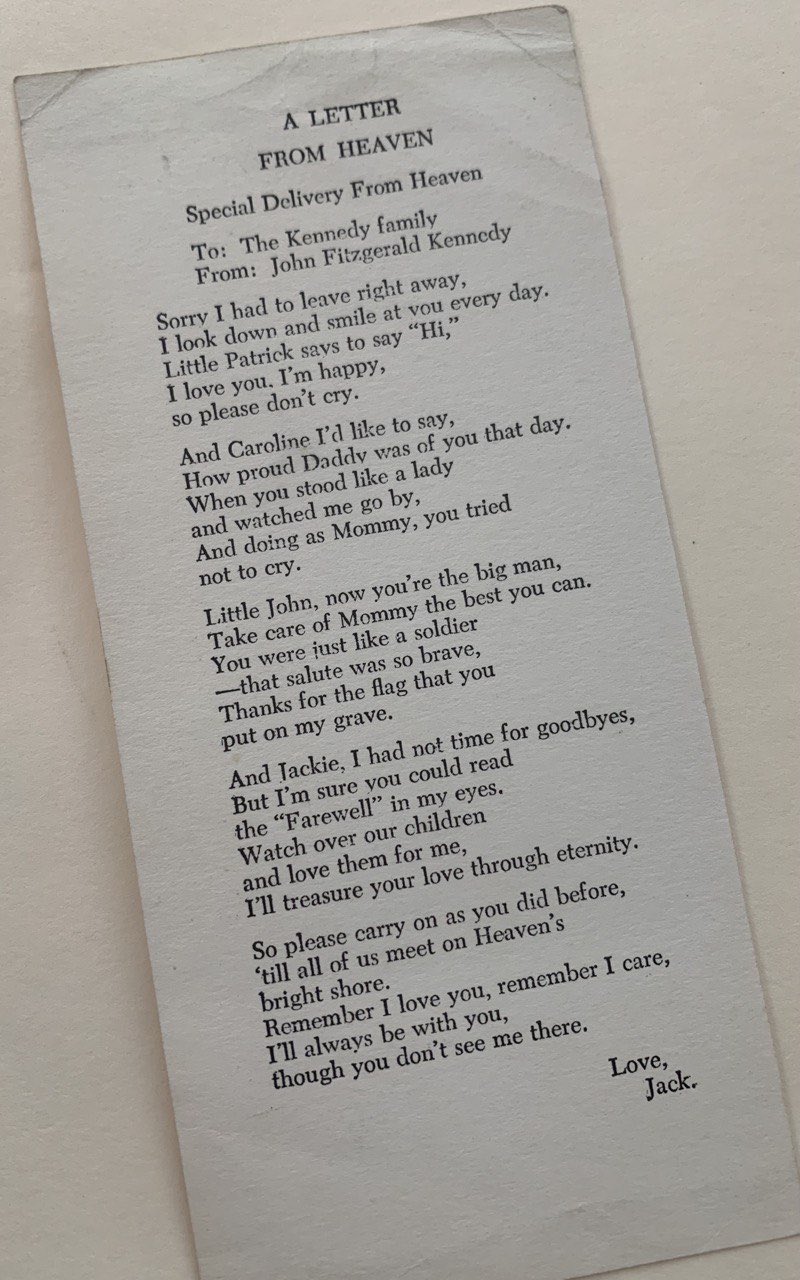 A LETTER
FROM HEAVEN
Special Delivery From Heaven
To: The Kennedy family
From: John Fitzgerald Kennedy
Sorry I had to leave right away,
I look down and smile at you every day.
Little Patrick says to say “Hi,”
I love you. I’m happy,
so please don’t cry.
And Caroline I’d like to say,
How proud Daddy was of you that day.
When you stood like a lady
and watched me go by,
And doing as Mommy, you tried
not to cry.
Little John, now you’re the big man,
Take care of Mommy the best you can.
You were just like a soldier
—that salute was so brave,
Thanks for the flag that you
put on my grave.
And Jackie, I had not time for goodbyes,
But I’m sure you could read
the “Farewell” in my eyes.
Watch over our children
and love them for me,
I’ll treasure your love through eternity.
So please carry on as you did before,
‘till all of us meet on Heaven’s
bright shore.
Remember I love you, remember I care,
I’ll always be with you,
though you don’t see me there.
Love,
Jack.